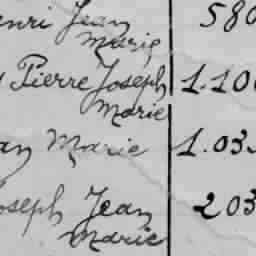 enri Jean 580
Marie
Pierre Joseph 1.100
Marie
an Marie 1.03
oseph Jean 203
Marie